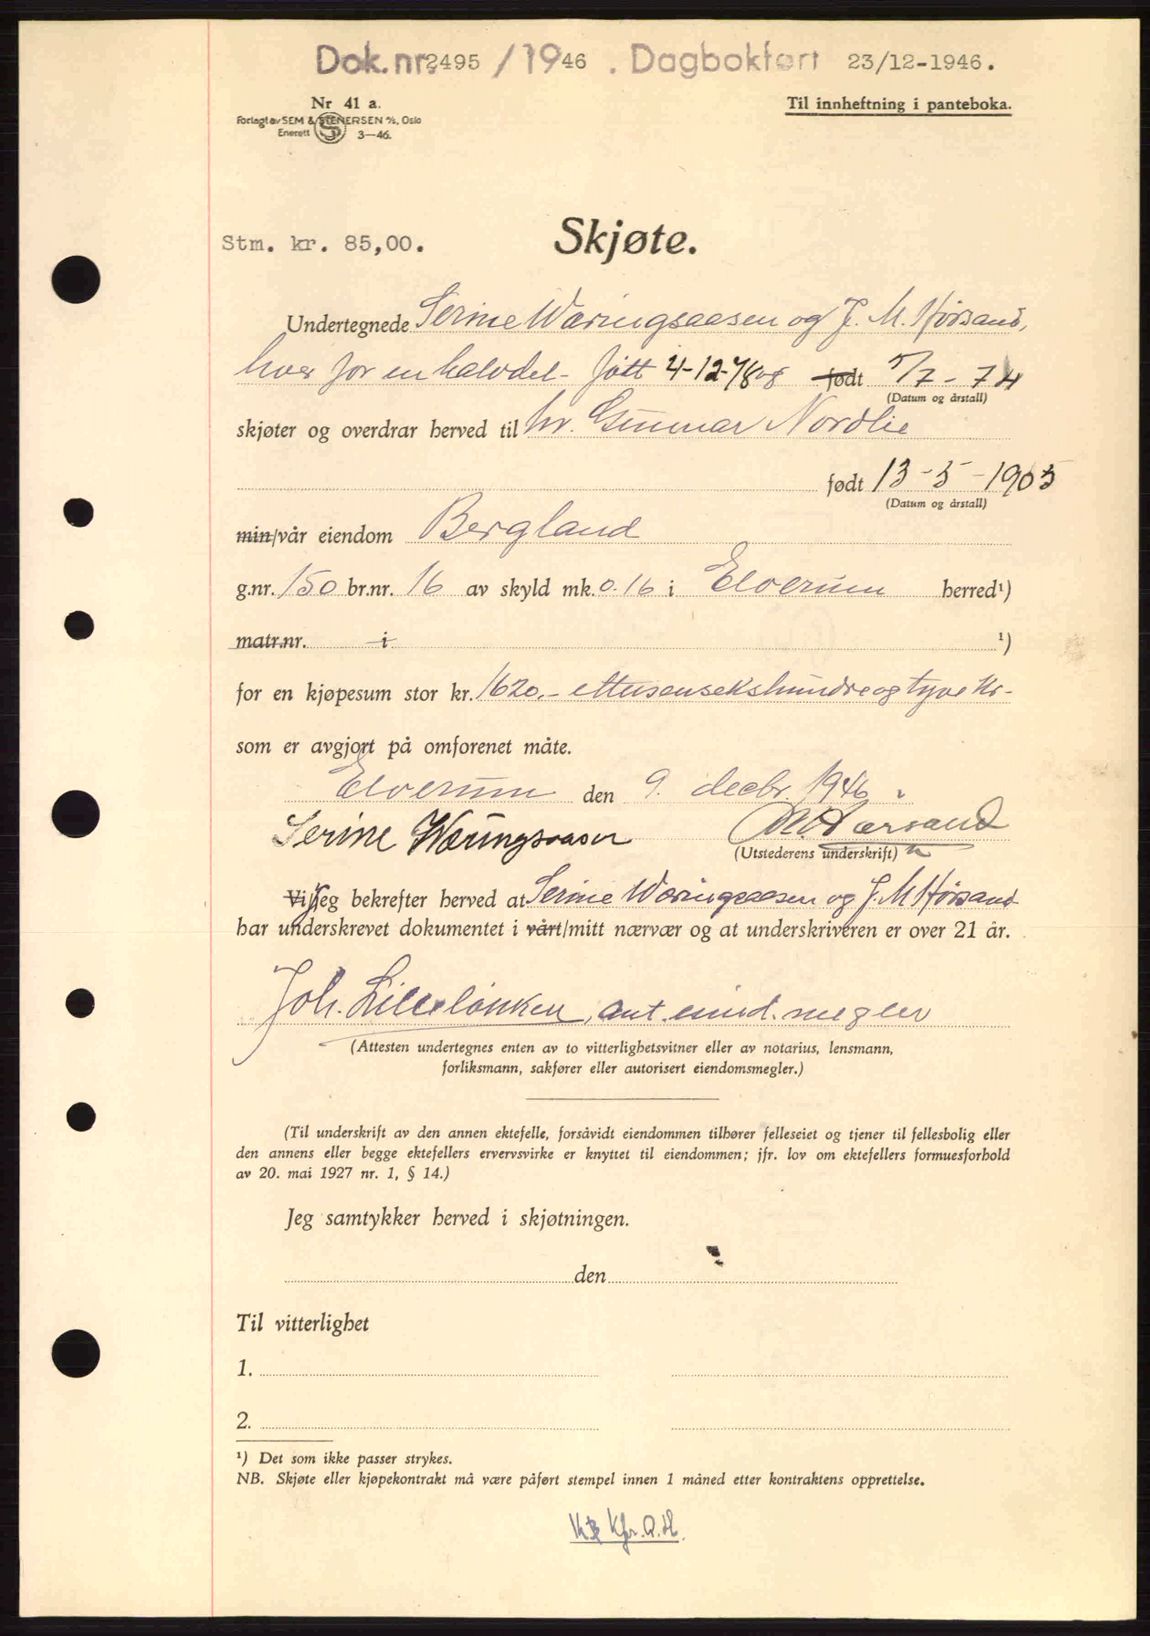 Dok.nr. 2495 /1946 . Dagbokført 23/12-1946.
Nr 41 a.
Til innheftning i panteboka.
Forlagt av SEM & STENERSEN A/S, Oslo
Enerett S 3—46.
Stm. kr. 85,00. Skjøte.
Undertegnede Serine Wæringsaasen og J. M. Hørsand,
hver for en halvdel - født 4-12-78 og født 5/7 - 74
(Datum og årstall)
skjøter og overdrar herved til hr. Gunnar Nordlie
født 13-5-1905
(Datum og årstall)
min/vår eiendom Bergland
g.nr. 150 br.nr. 16 av skyld mk. 0.16 i Elverum herred¹)
matr.nr. i ¹)
for en kjøpesum stor kr. 1620.- ettusensekshundreogtyve kr-
som er avgjort på omforenet måte.
Elverum den 9. decbr. 1946.
Serine Wæringsaasen
(Utstederens underskrift)
Vi/jeg bekrefter herved at Serine Wæringsaasen og J. M Hørsand
har underskrevet dokumentet i vårt/mitt nærvær og at underskriveren er over 21 år.
Joh. Lillelånken, aut. eiend. megler
(Attesten undertegnes enten av to vitterlighetsvitner eller av notarius, lensmann,
forliksmann, sakfører eller autorisert eiendomsmegler.)
(Til underskrift av den annen ektefelle, forsåvidt eiendommen tilhører felleseiet og tjener til fellesbolig eller
den annens eller begge ektefellers ervervsvirke er knyttet til eiendommen; jfr. lov om ektefellers formuesforhold
av 20. mai 1927 nr. 1, § 14.)
Jeg samtykker herved i skjøtningen.
den
Til vitterlighet
1.
2.
¹) Det som ikke passer strykes.
NB. Skjøte eller kjøpekontrakt må være påført stempel innen 1 måned etter kontraktens opprettelse.